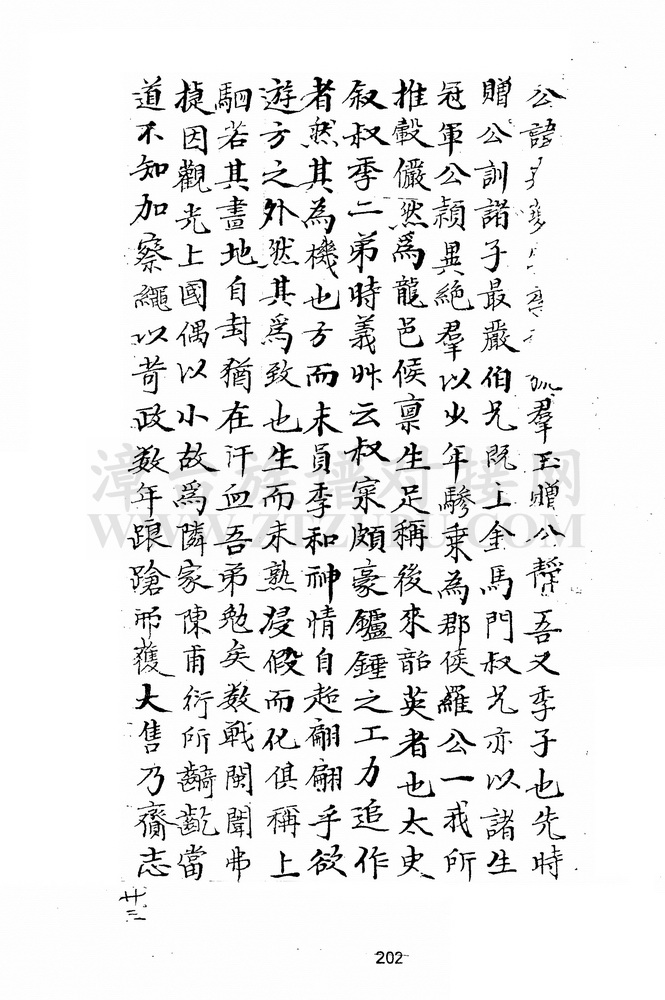 公諱 羣玉贈公贊吾又季子也先時
贈公訓諸子最嚴伯兄既上金馬門叔兄亦以諸生
冠軍公穎異絕羣以少年驂乗為郡侯羅公一我所
推轂儼然爲龍邑候稟生足稱後來韶英者也太史
叙叔季二弟時義屾云叔寀頗豪鑪錘之工力追作
者然其為機也方而未員季和神情自超翩翩乎欲
遊方之外然其爲致也生而未熟浸假而化俱稱上
駟若其畫地自封猶在汗血吾弟勉矣数戰閩闈弗
㨗因觀光上國偶以小故爲隣家陳甫衍所齮齕當
道不知加察繩以苛政数年踉蹌而獲大售乃齎志
廿三
202
漳台族谱对接网
WWW.ZTZUPU.COM